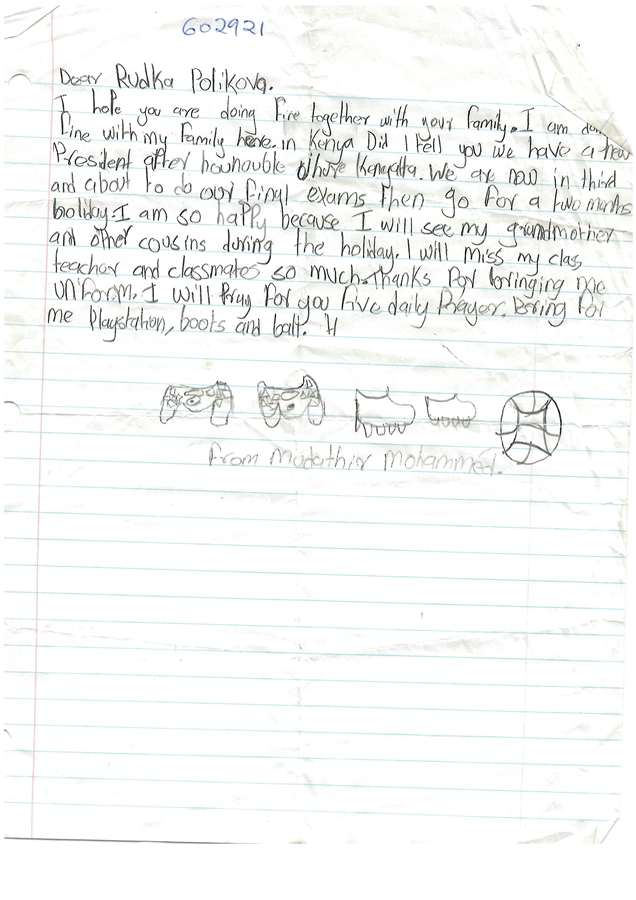 602921
Dear Rudka Polikova.
I hope you are doing fire together with your family. I am doin
fine with my family here. in Kenya Did I tell you we have a new
President after hounouble Uhure Kenyatta. We are now in third
and about to do our final exams then go for a two months
holiday. I am so happy because I will see my grandmother
and other cousins during the holiday. I will miss my clas
teacher and classmates so much. thanks for bringing me
uniform. I will Pray for you five daily Prayer. Bring for
me Playstation, boots and ball.
from Mudathir Mohammed.